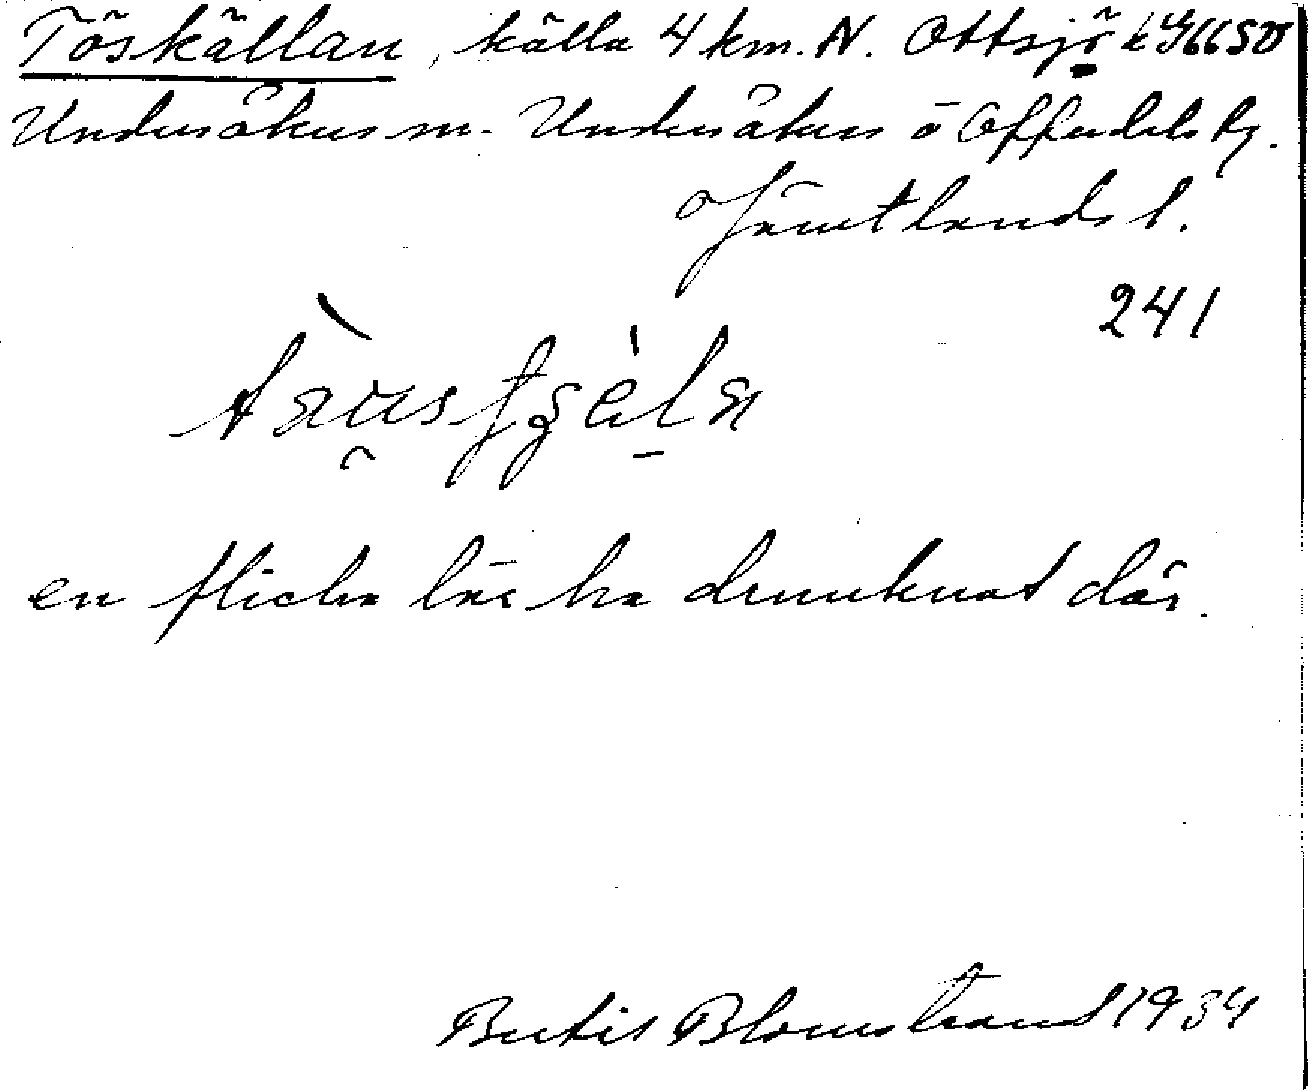 Töskällan, källa 4 km. N. Ottsjö
Undersåkers sn. Undersåkers o Offerdals tg.
Jämtlands l.
241
en flicka lär ha drunknat där.
Bertil Blomstrand 1934